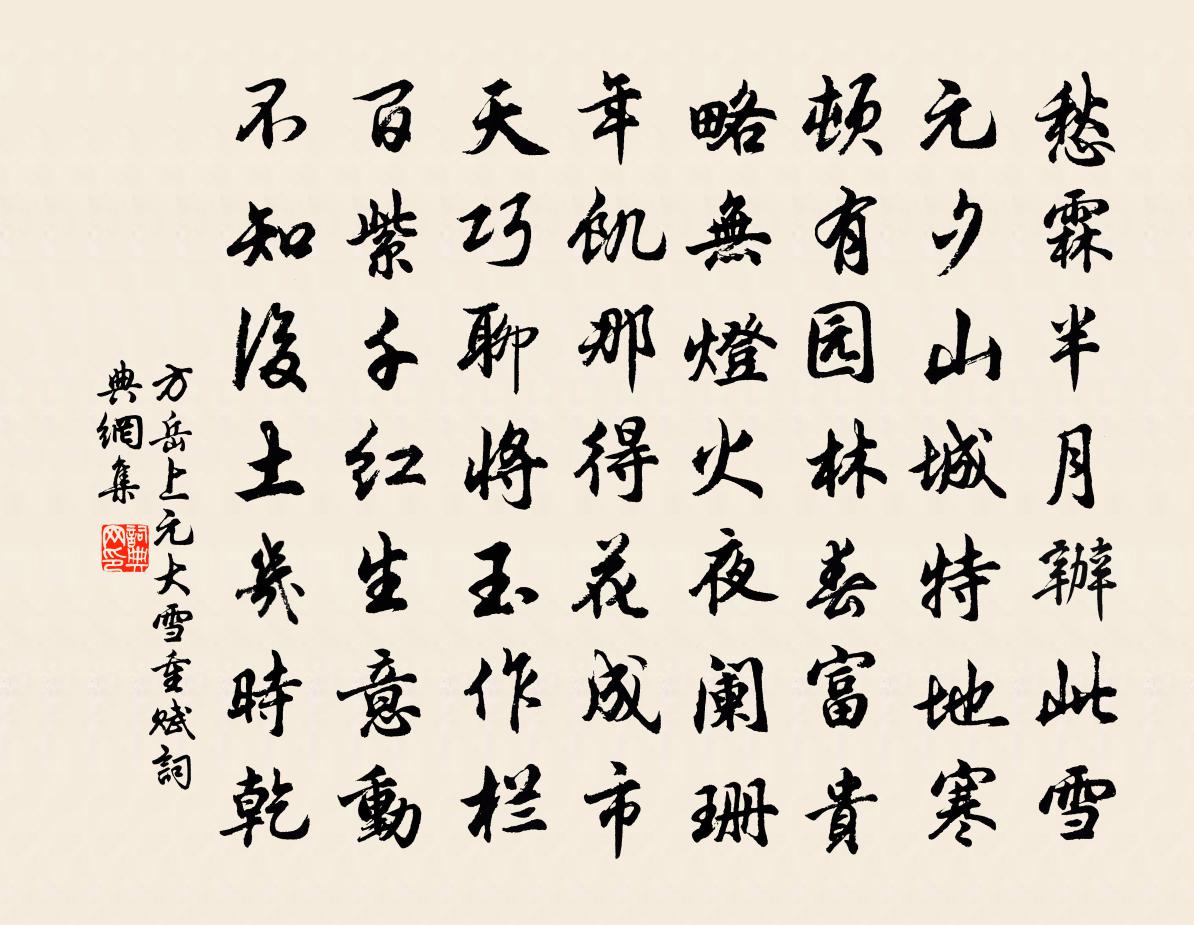 愁霖半月辦此雪
元夕山城特地寒
頓有园林春富貴
略無燈火夜阑珊
年飢那得花成市
天巧聊将玉作栏
百紫千红生意動
不知後土幾時乾
方岳上元大雪重赋詞
典網集
詞典
网印